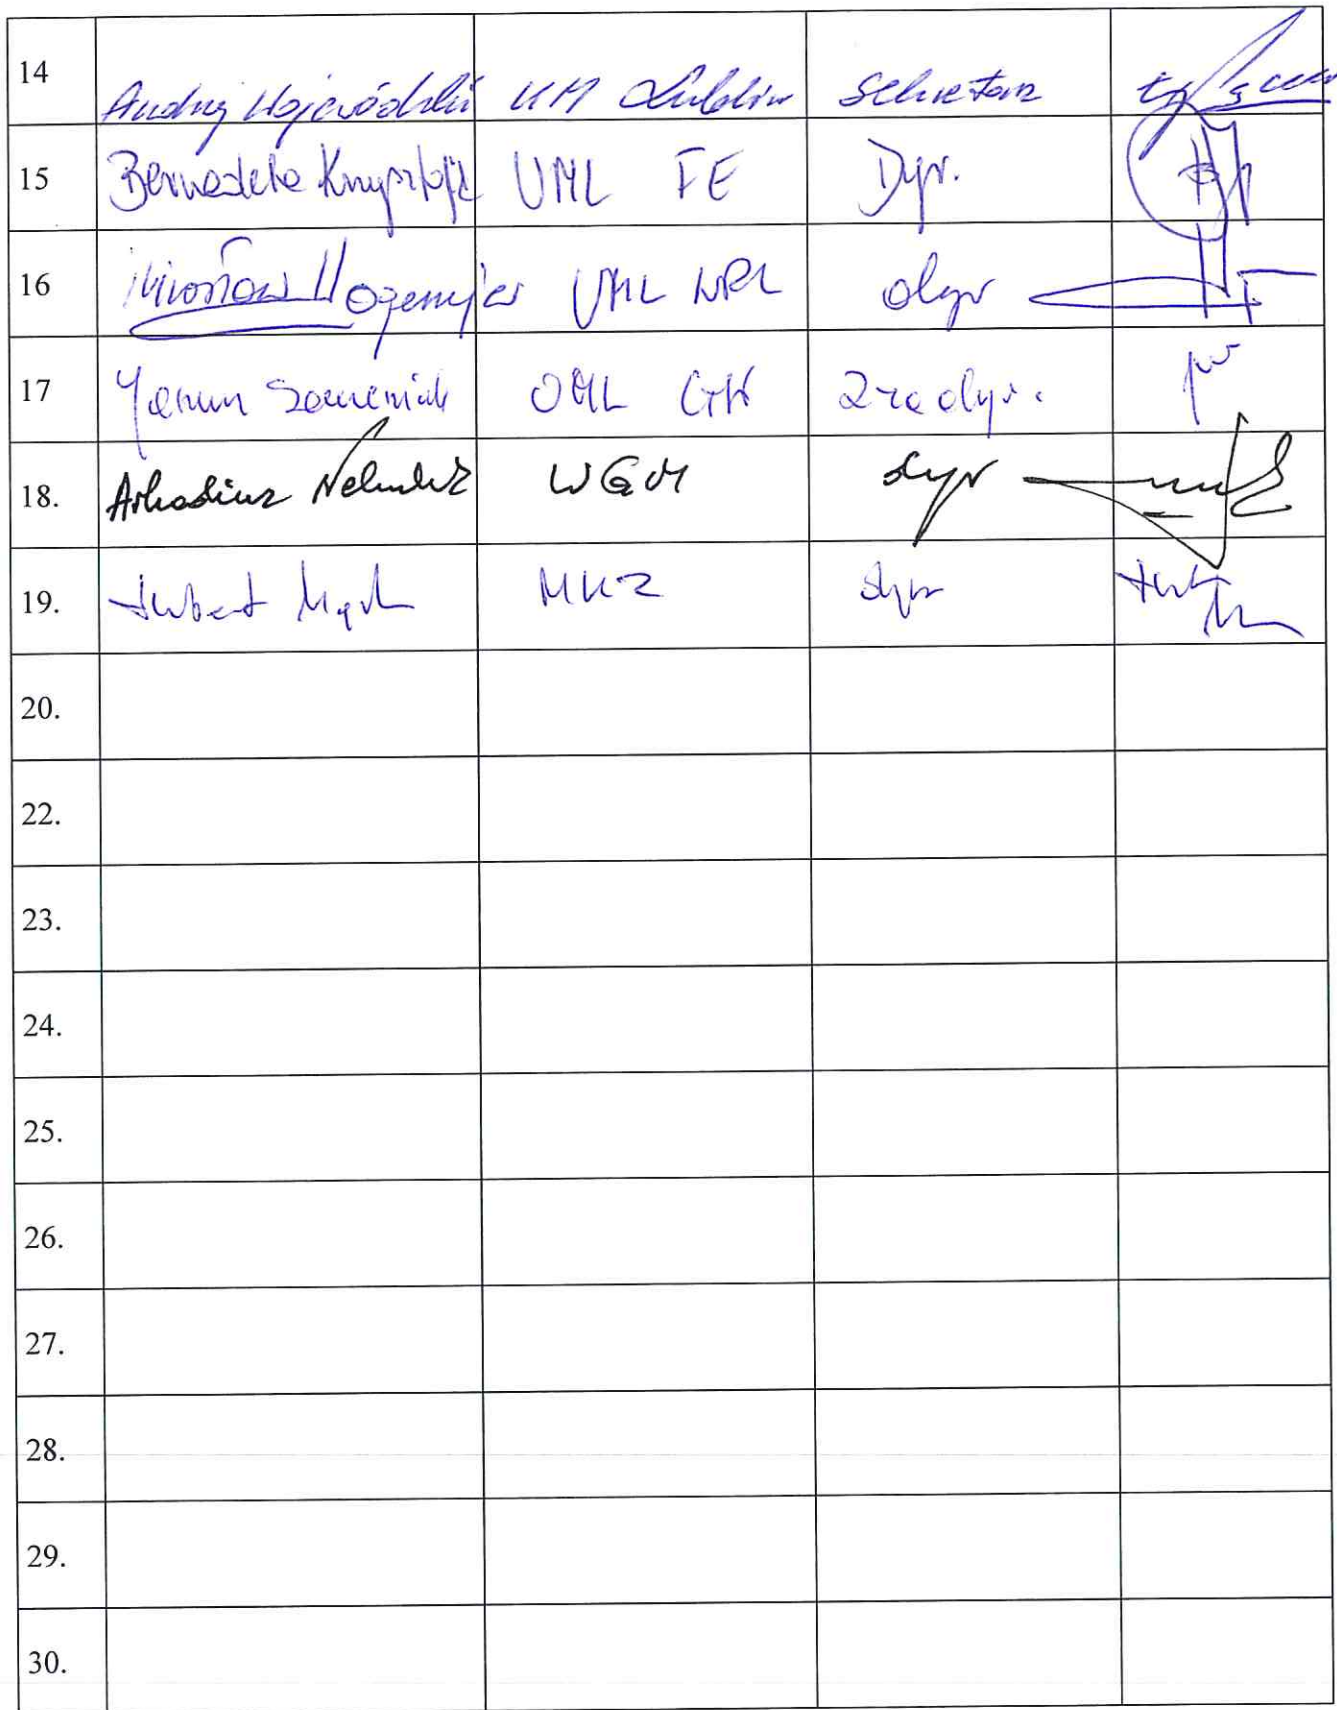 14 Andrzej Wojewódzki UM Lublin Sekretarz
15 Bernadeta Krzysztofik UML FE Dyr.
16 Mirosław Hagemejer UML WPL dyr
17 UML GK Z-ca dyr.
18. Arkadiusz Nahuluk WGM dyr
19. Hubert MKZ dyr
20.
22.
23.
24.
25.
26.
27.
28.
29.
30.